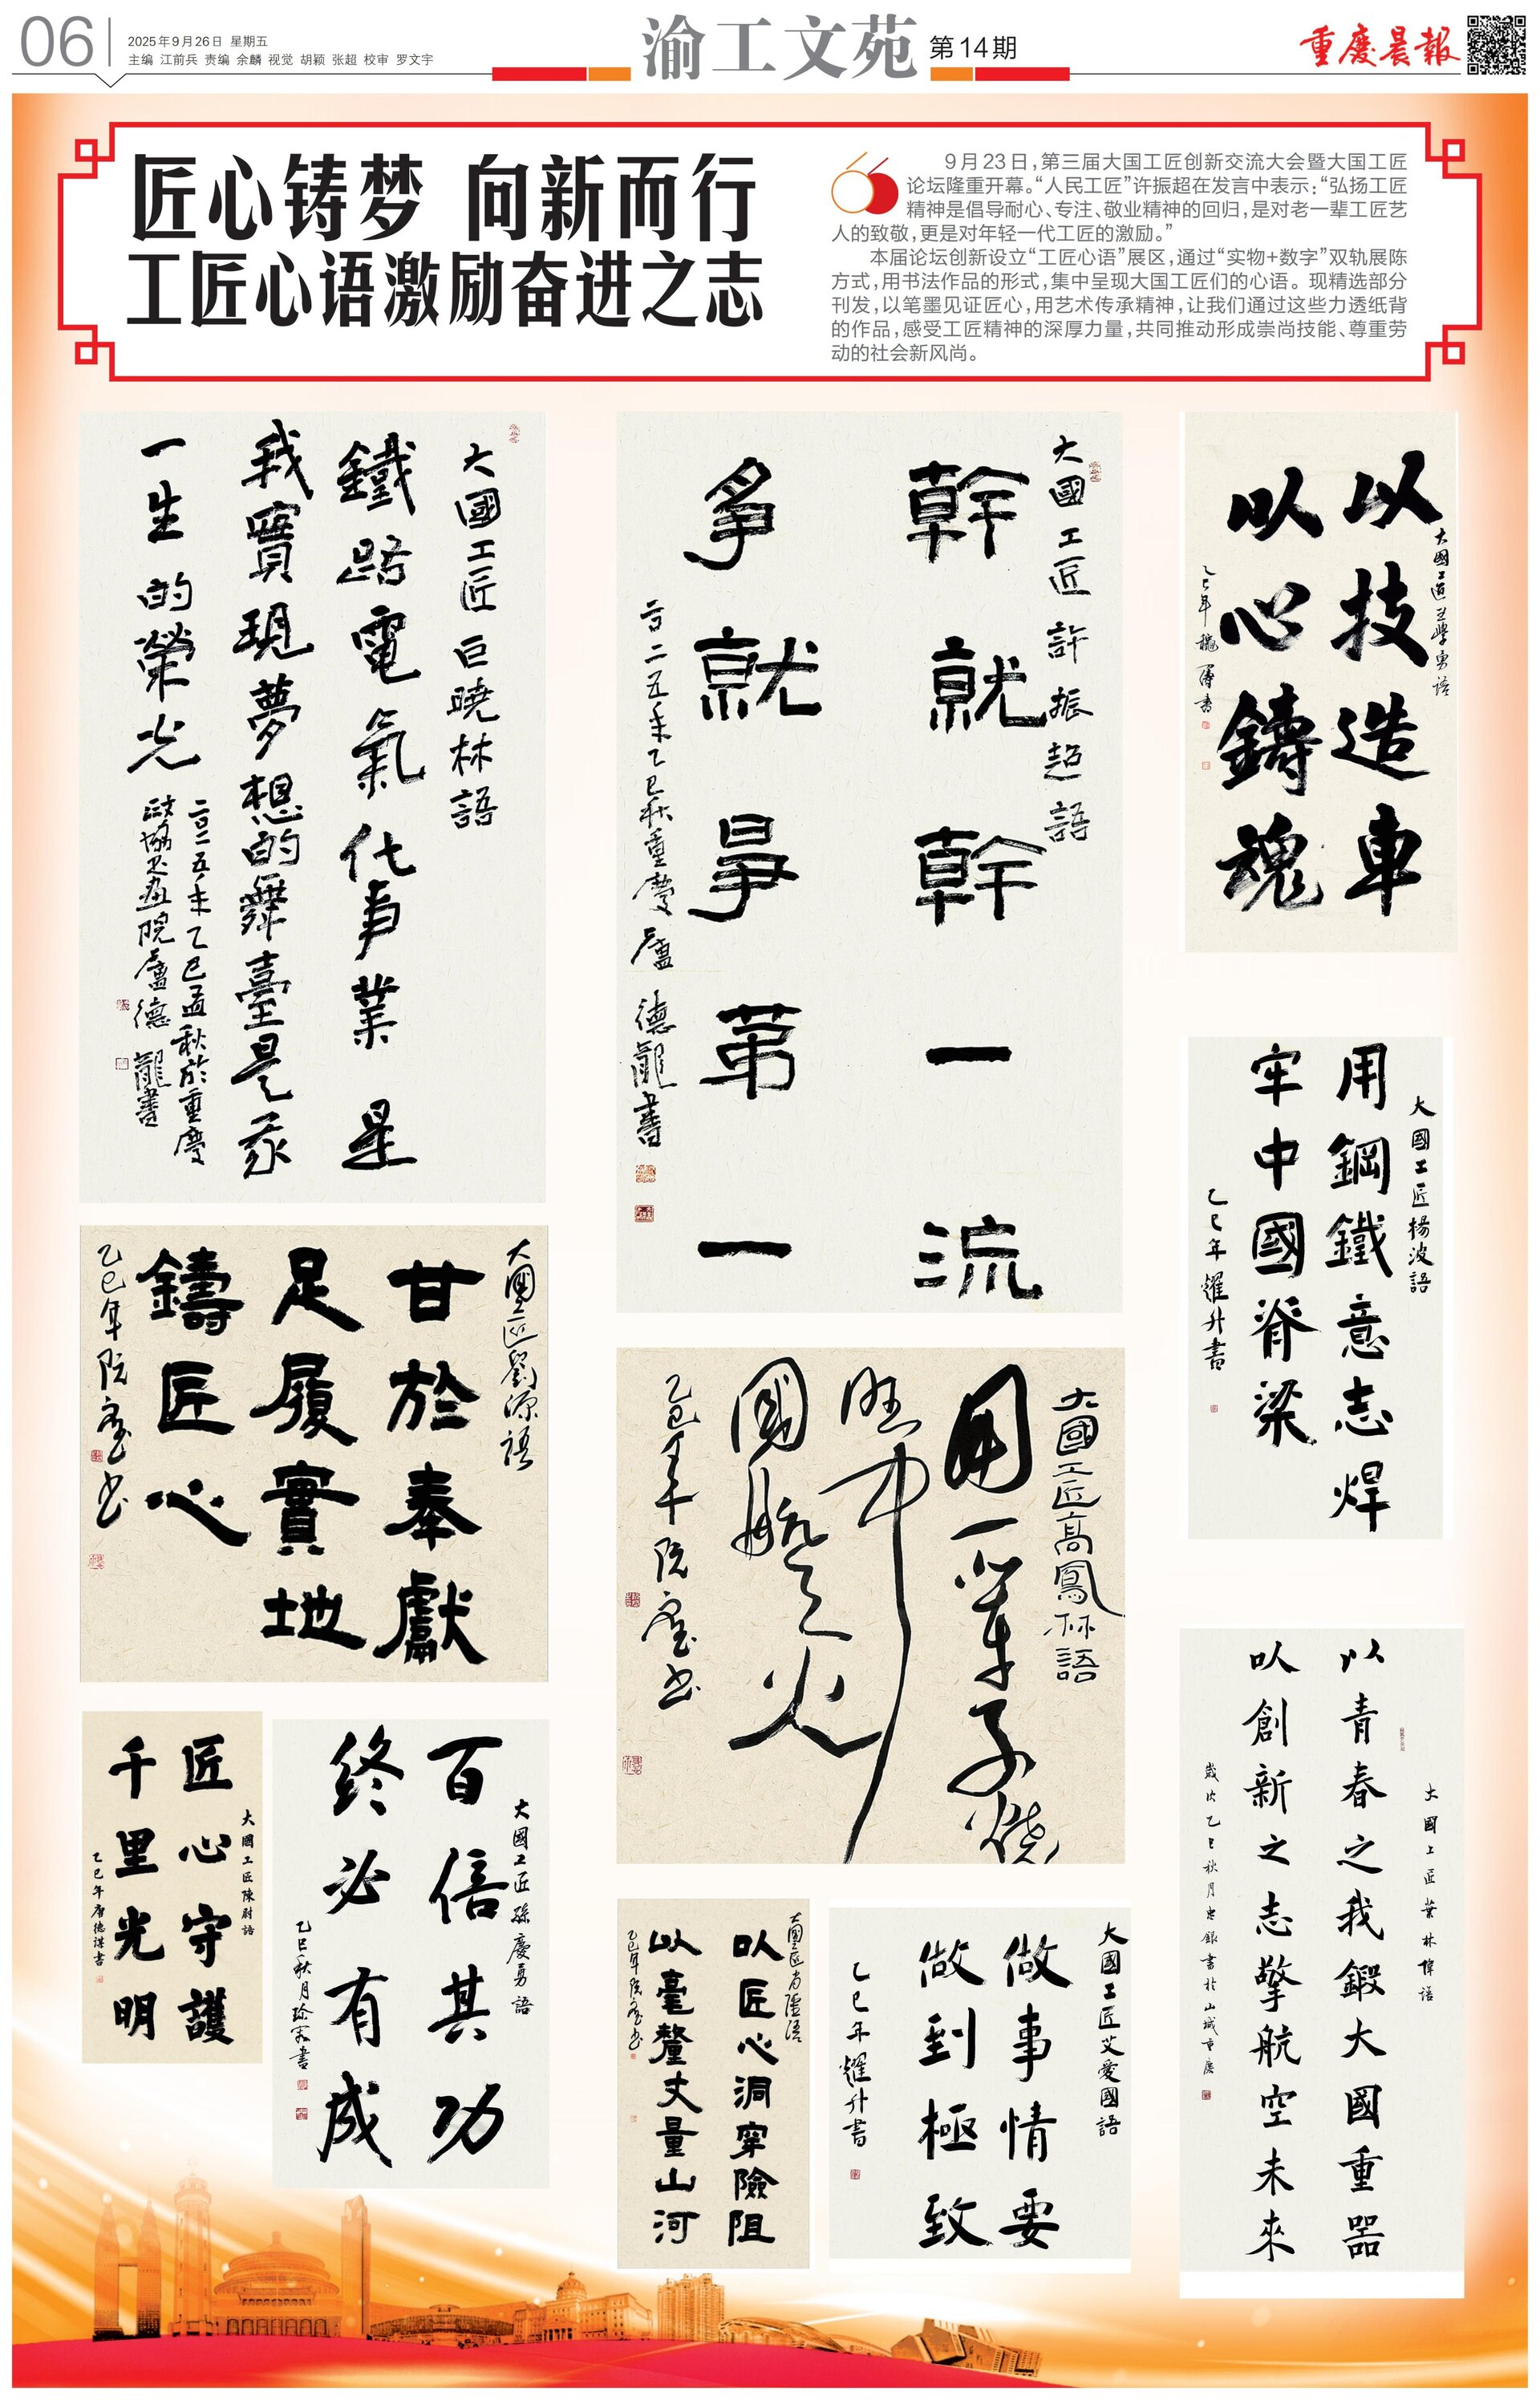 06
2025年9月26日 星期五
主编 江前兵 责编 余麟 视觉 胡颖 张超 校审 罗文宇
渝工文苑
第14期
重慶晨報
匠心铸梦 向新而行
工匠心语激励奋进之志
9月23日，第三届大国工匠创新交流大会暨大国工匠
论坛隆重开幕。“人民工匠”许振超在发言中表示：“弘扬工匠
精神是倡导耐心、专注、敬业精神的回归，是对老一辈工匠艺
人的致敬，更是对年轻一代工匠的激励。”
本届论坛创新设立“工匠心语”展区，通过“实物+数字”双轨展陈
方式，用书法作品的形式，集中呈现大国工匠们的心语。现精选部分
刊发，以笔墨见证匠心，用艺术传承精神，让我们通过这些力透纸背
的作品，感受工匠精神的深厚力量，共同推动形成崇尚技能、尊重劳
动的社会新风尚。
大國工匠巨曉林語
鐵路電氣化事業是
我實現夢想的舞臺是我
一生的榮光
二〇二五年乙巳孟秋於重慶
政協書畫院盧德龍書
大國工匠許振超語
幹就幹一流
爭就爭第一
二〇二五年乙巳秋重慶盧德龍書
以技造車
以心鑄魂
乙巳年
大國工匠楊波語
用鋼鐵意志焊
牢中國脊梁
乙巳年耀升書
大國工匠劉源語
甘於奉獻
足履實地
鑄匠心
乙巳年阮
大國工匠高鳳林語
用一輩子燃
旺中
國航天之火
乙巳年阮
大國工匠葉林偉語
以青春之我鍛大國重器
以創新之志擎航空未來
歲次乙巳秋月忠銀書於山城重慶
大國工匠陳尉語
匠心守護
千里光明
乙巳年唐德謀書
大國工匠孫慶勇語
百倍其功
終必有成
乙巳秋月
大國工匠
以匠心洞穿險阻
以毫釐丈量山河
乙巳年阮
大國工匠艾愛國語
做事情要
做到極致
乙巳年耀升書